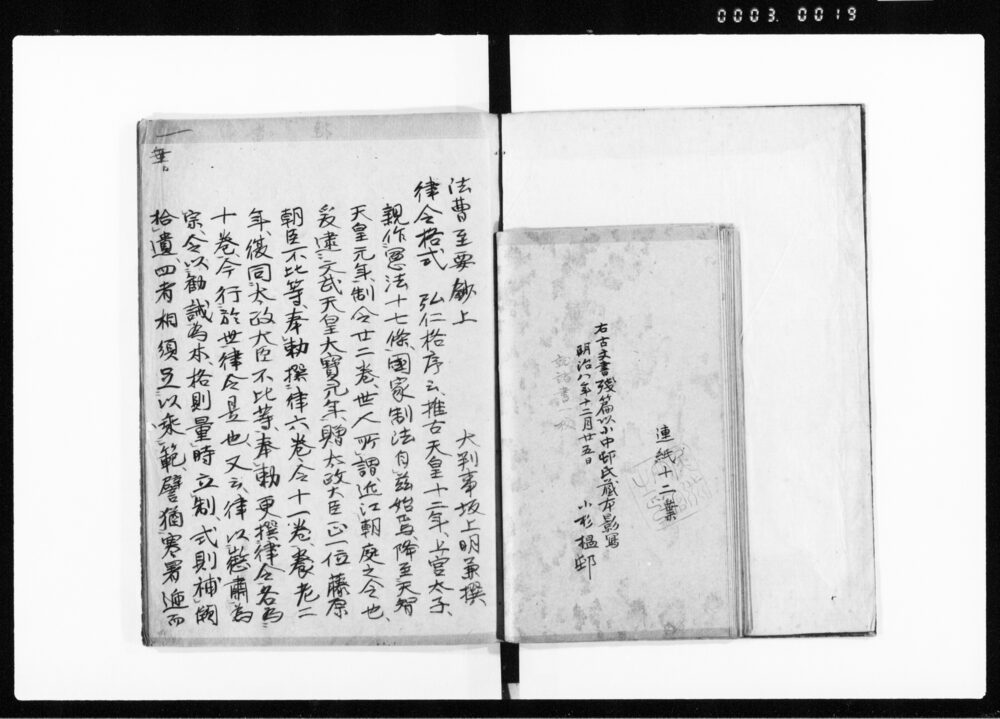 0003.0019
連紙十二葉
右古文書残篇以小中邨氏蔵本影寫
明治八年十二月廿五日 小杉榲邨
法曹至要鈔上
大判事坂上明兼撰
律令格式 弘仁格序云、推古天皇十二年、上宮太子、
親作憲法十七條、國家制法自茲始焉、降至天智
天皇元年、制令廿二卷、世人所謂、近江朝庭之令也、
爰逮文武天皇大寶元年、贈太政大臣正一位藤原
朝臣不比等、奉勅撰律六卷、令十一卷、養老二
年、復同太政大臣不比等、奉勅更撰律令各為
十卷、今行於世律令是也、又云、律以懲肅為
宗、令以勸誡為本、格則量時立制、式則補闕
拾遺、四者相須足以垂範、譬猶寒暑遞而
一
葉